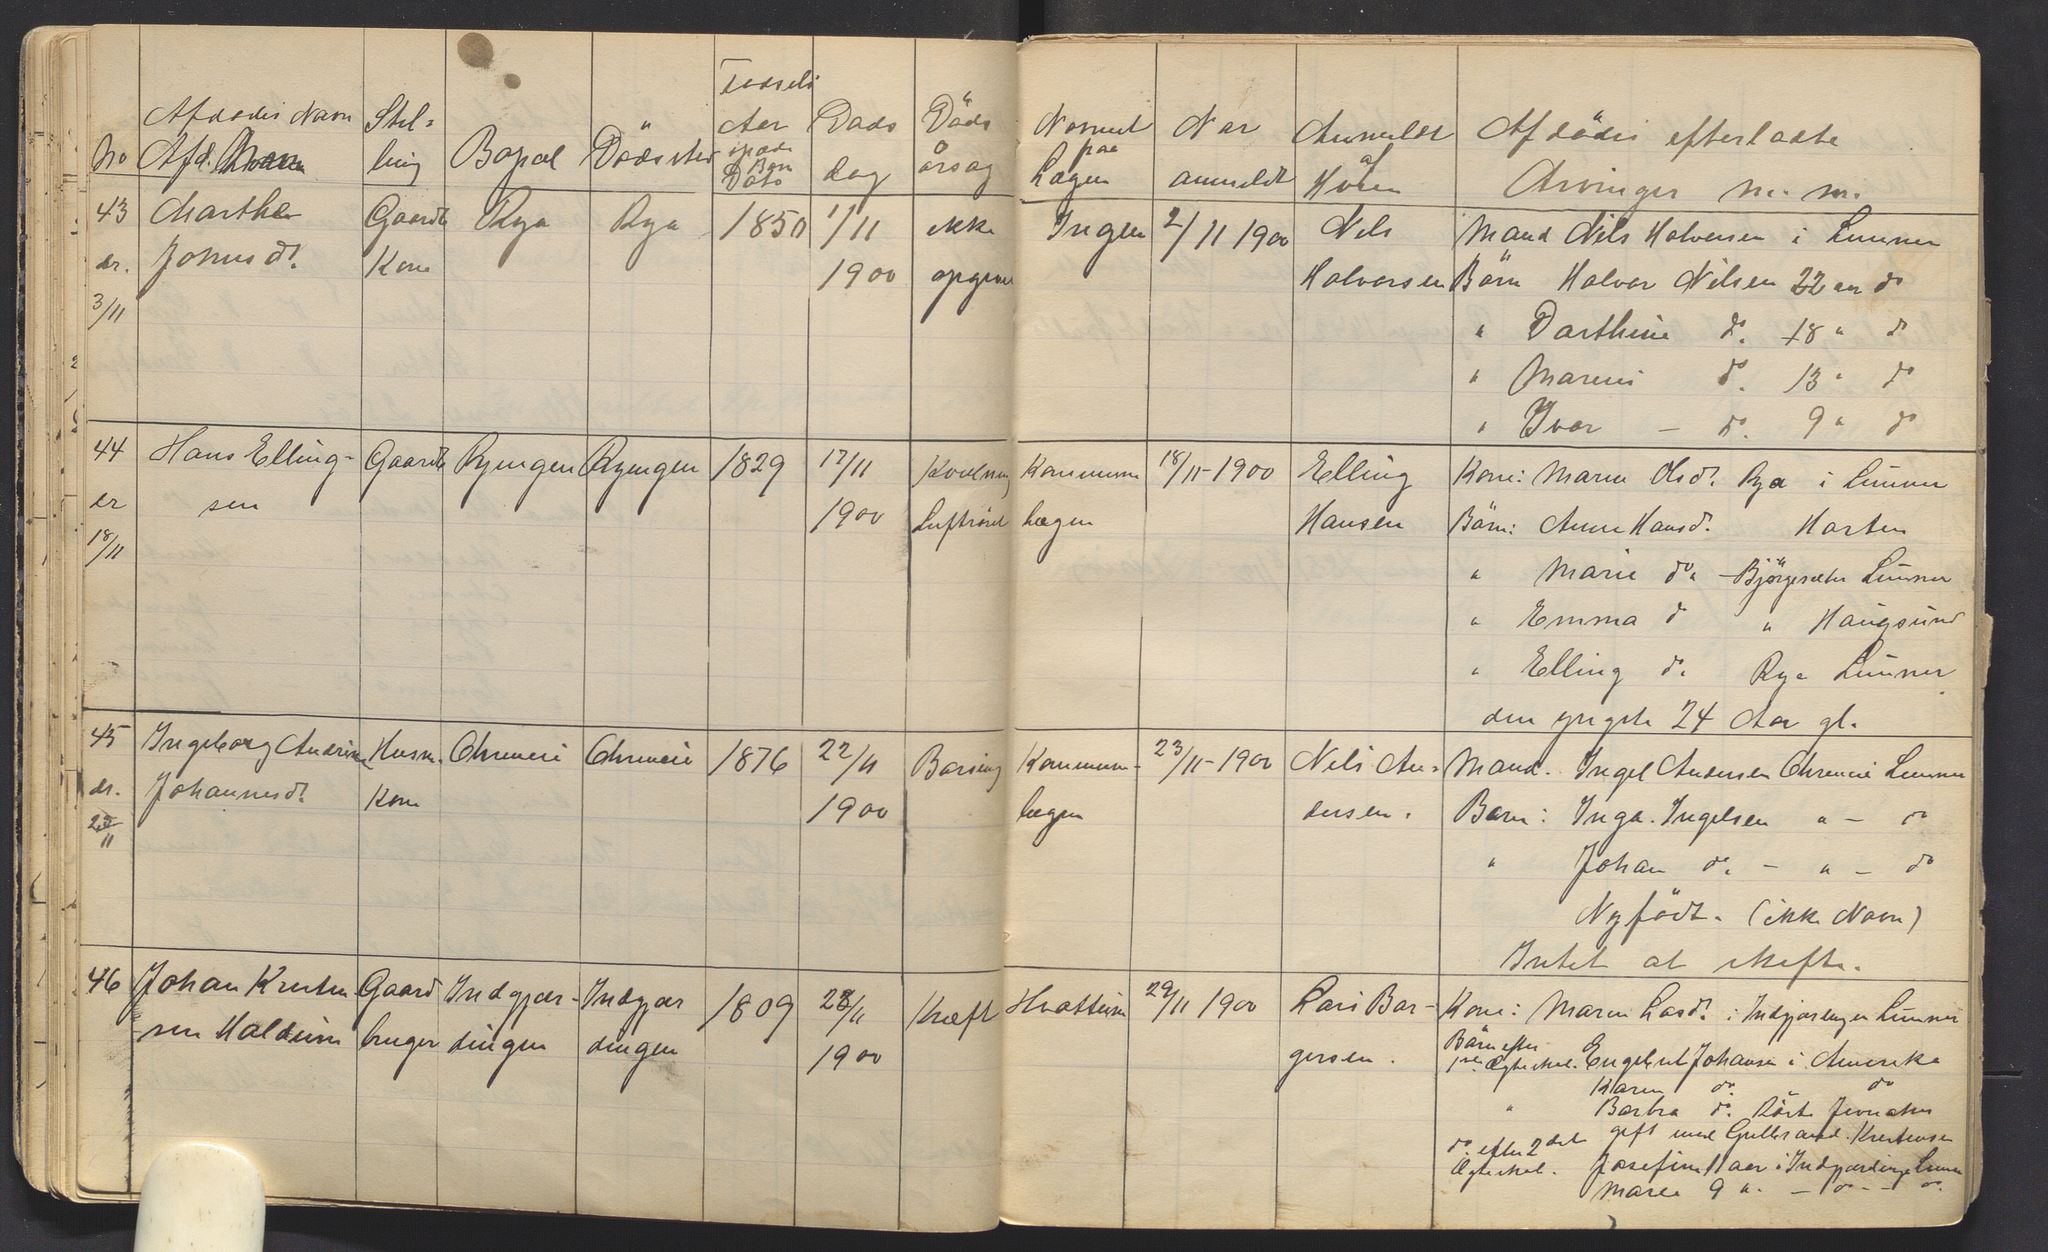 No
Afdødes Navn
Afd. Navn
Stil-
ling
Bopæl
Dödssted
Födsels
Aar
Börn
Dato
Döds
dag
Döds
årsag
Navnet
paa
Lægen
Nar
anmeldt
Anmeldt
af
Hvem
Afdödes efterladte
Arvinger m. m.
43
er.
3/11
Marthea
Jonasd.
Gaardb
Kone
Rya
Rya
1850
1/11
1900
ikke
opgivet
Ingen
2/11 1900
Nils
Halvorsen
Mand Nils Halvorsen i Lunner
Börn Halvor Nilsen 22 aar do
" Dorthine do. 18 " do
" do. 13 " do
" Ivar – do. 9 " do
44
er
18/11
Hans Elling-
sen
Gaardb
Ryengen
Ryengen
1829
17/11
1900
Kvælning
Luftröret
Kommune
lægen
18/11-1900
Elling
Hansen
Kone: Maren Olsd. Rya i Lunner
Börn: Anne Hansd. Horten
" Marie do. - Björgesæter Lunner
" Emma do " Haugsund
" Elling do. Rya Lunner
den yngste 24 Aar gl.
45
er.
23/11
Ingeborg Andrine
Johannesd.
Husm.
Kone
Ohreneie
Ohreneie
1876
22/11
1900
Barsing
Kommune-
lægen
23/11-1900
Nils An-
dersen.
Mand. Ingel Andersen Ohreneie Lunner
Barn: Inga Ingelsen " – do
" Johan do. – " – do
Nyfödt. (ikke Navn)
Intet at skifte.
46
Johan Kristen
sen Haldum
Gaard
bruger
Indgjær-
dingen
Indgjær
dingen
1809
28/11
1900
Kræft
Hvattum
29/11 1900
Lars Bor-
gersen.
Kone: Maren Larsd. i Indgjærdingen Lunner
Börn efter
1ste Ægteskab. Engebret Johansen i Amerika
Karen do. do
" Barbra do.
gift med Gulbrand Kristensen
do. efter 2det
Ægteskab. Josefine 11 aar i Indgjærdingen Lunner
Maren 9 " – do – do.